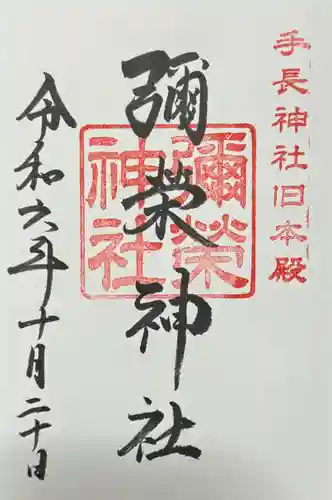 手長神社旧本殿
彌榮神社
彌榮
神社
令和六年十月二十日